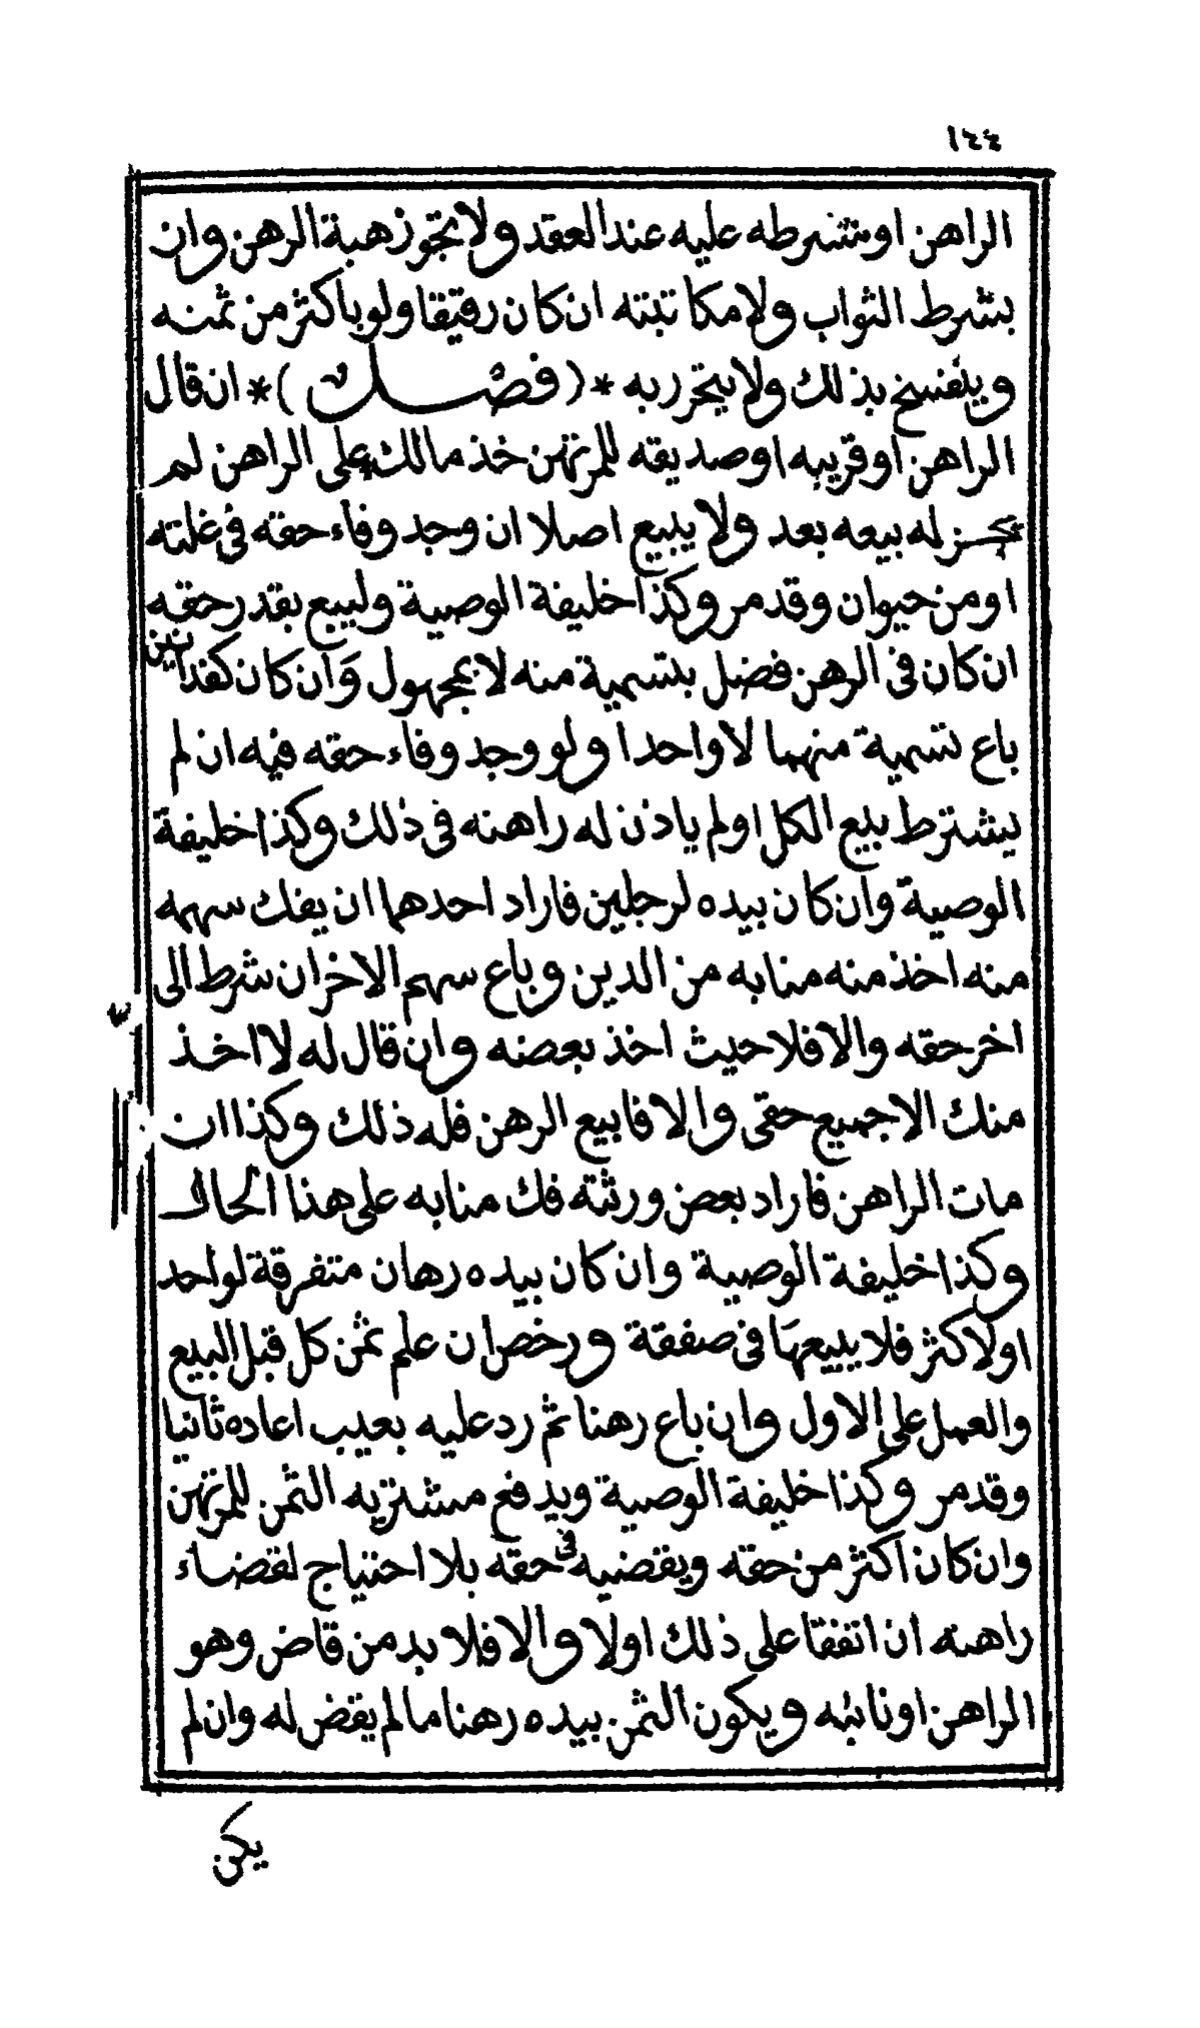 ١٤٤
الراهن او شرطه عليه عند العقد ولا تجوز هبة الرهن وان
بشرط الثواب ولا مكاتبته ان كان رقيقا ولو باكثر من ثمنه
وينفسخ بذلك ولا يتحرر به * ( فصل ) * ان قال
الراهن او قريبه او صديقه للمرتهن خذ مالك على الراهن لم
يجز له بيعه بعد ولا يبيع اصلا ان وجد وفاء حقه فى غلته
او من حيوان وقد مر وكذا خليفة الوصية وليبع بقدر حقه
ان كان فى الرهن فضل بتسمية منه لا بمجهول وان كان كفدانين
باع تسمية منهما لا واحدا ولو وجد وفاء حقه فيه ان لم
يشترط بيع الكل او لم ياذن له راهنه فى ذلك وكذا خليفة
الوصية وان كان بيده لرجلين فاراد احدهما ان يفك سهمه
منه اخذ منه منابه من الدين وباع سهم الاخر ان شرط الى
اخر حقه والا فلا حيث اخذ بعضه وان قال له لا اخذ
منك الا جميع حقى والا فابيع الرهن فله ذلك وكذا ان
مات الراهن فاراد بعض ورثته فك منابه على هذا الحال
وكذا خليفة الوصية وان كان بيده رهان متفرقة لواحد
او لاكثر فلا يبيعها فى صفقة ورخص ان علم ثمن كل قبل البيع
والعمل على الاول وان باع رهنا ثم رد عليه بعيب اعاده ثانيا
وقد مر وكذا خليفة الوصية ويدفع مشتريه الثمن للمرتهن
وان كان اكثر من حقه ويقضيه فى حقه بلا احتياج لقضاء
راهنه ان اتفقا على ذلك اولا والا فلا بد من قاض وهو
الراهن او نائبه ويكون الثمن بيده رهنا ما لم يقض له وان لم
يكن